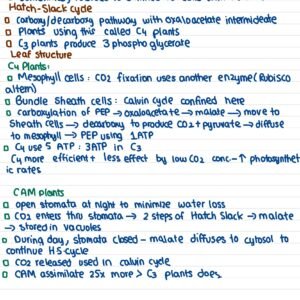 Hatch-Slack cycle
carboxy/decarboxy pathway with oxaloacetate intermideate
Plants using this called C4 plants
C3 plants produce 3 phospho glycerate
Leaf structure
C4 Plants:
Mesophyll cells: CO2 fixation uses another enzyme (Rubisco
altern)
Bundle Sheath cells: Calvin cycle confined here
carboxylation of PEP → oxaloacetate → malate → move to
Sheath cells → decarboxy to produce CO2 + pyruvate → diffuse
to mesophyll → PEP using 1 ATP
C4 use 5 ATP : 3 ATP in C3
C4 more efficient + less effect by low CO2 conc - ↑ photosynthet
ic rates
CAM plants
open stomata at night to minimize water loss
CO2 enters thru stomata → 2 steps of Hatch Slack → malate
→ stored in vacuoles
During day, stomata closed - malate diffuses to cytosol to
continue HS cycle
CO2 released used in calvin cycle
CAM assimilate 25x more > C3 plants does.